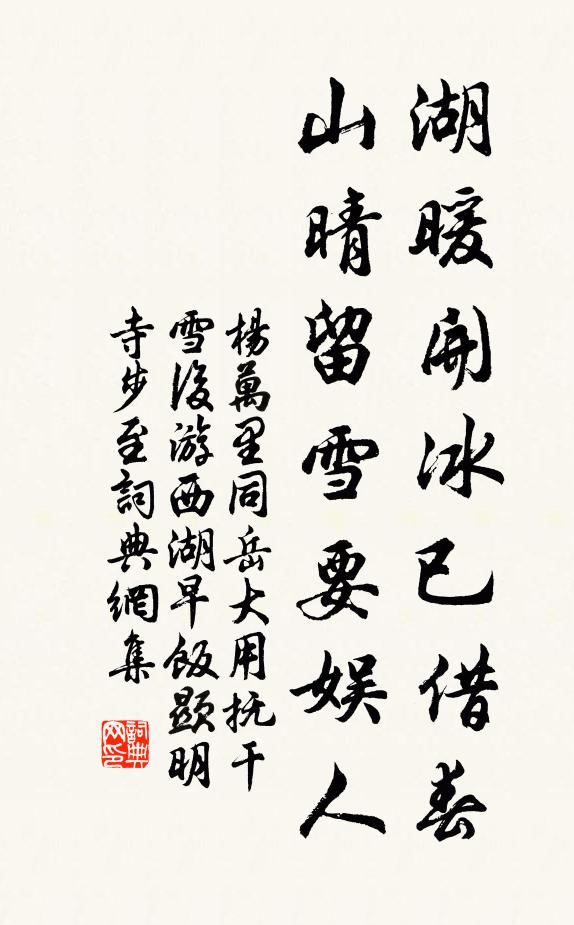 湖暖開冰已借春
山晴留雪要娱人
楊萬里同岳大用抚干
雪後游西湖早飯顯明
寺步至詞典網集
詞典网印